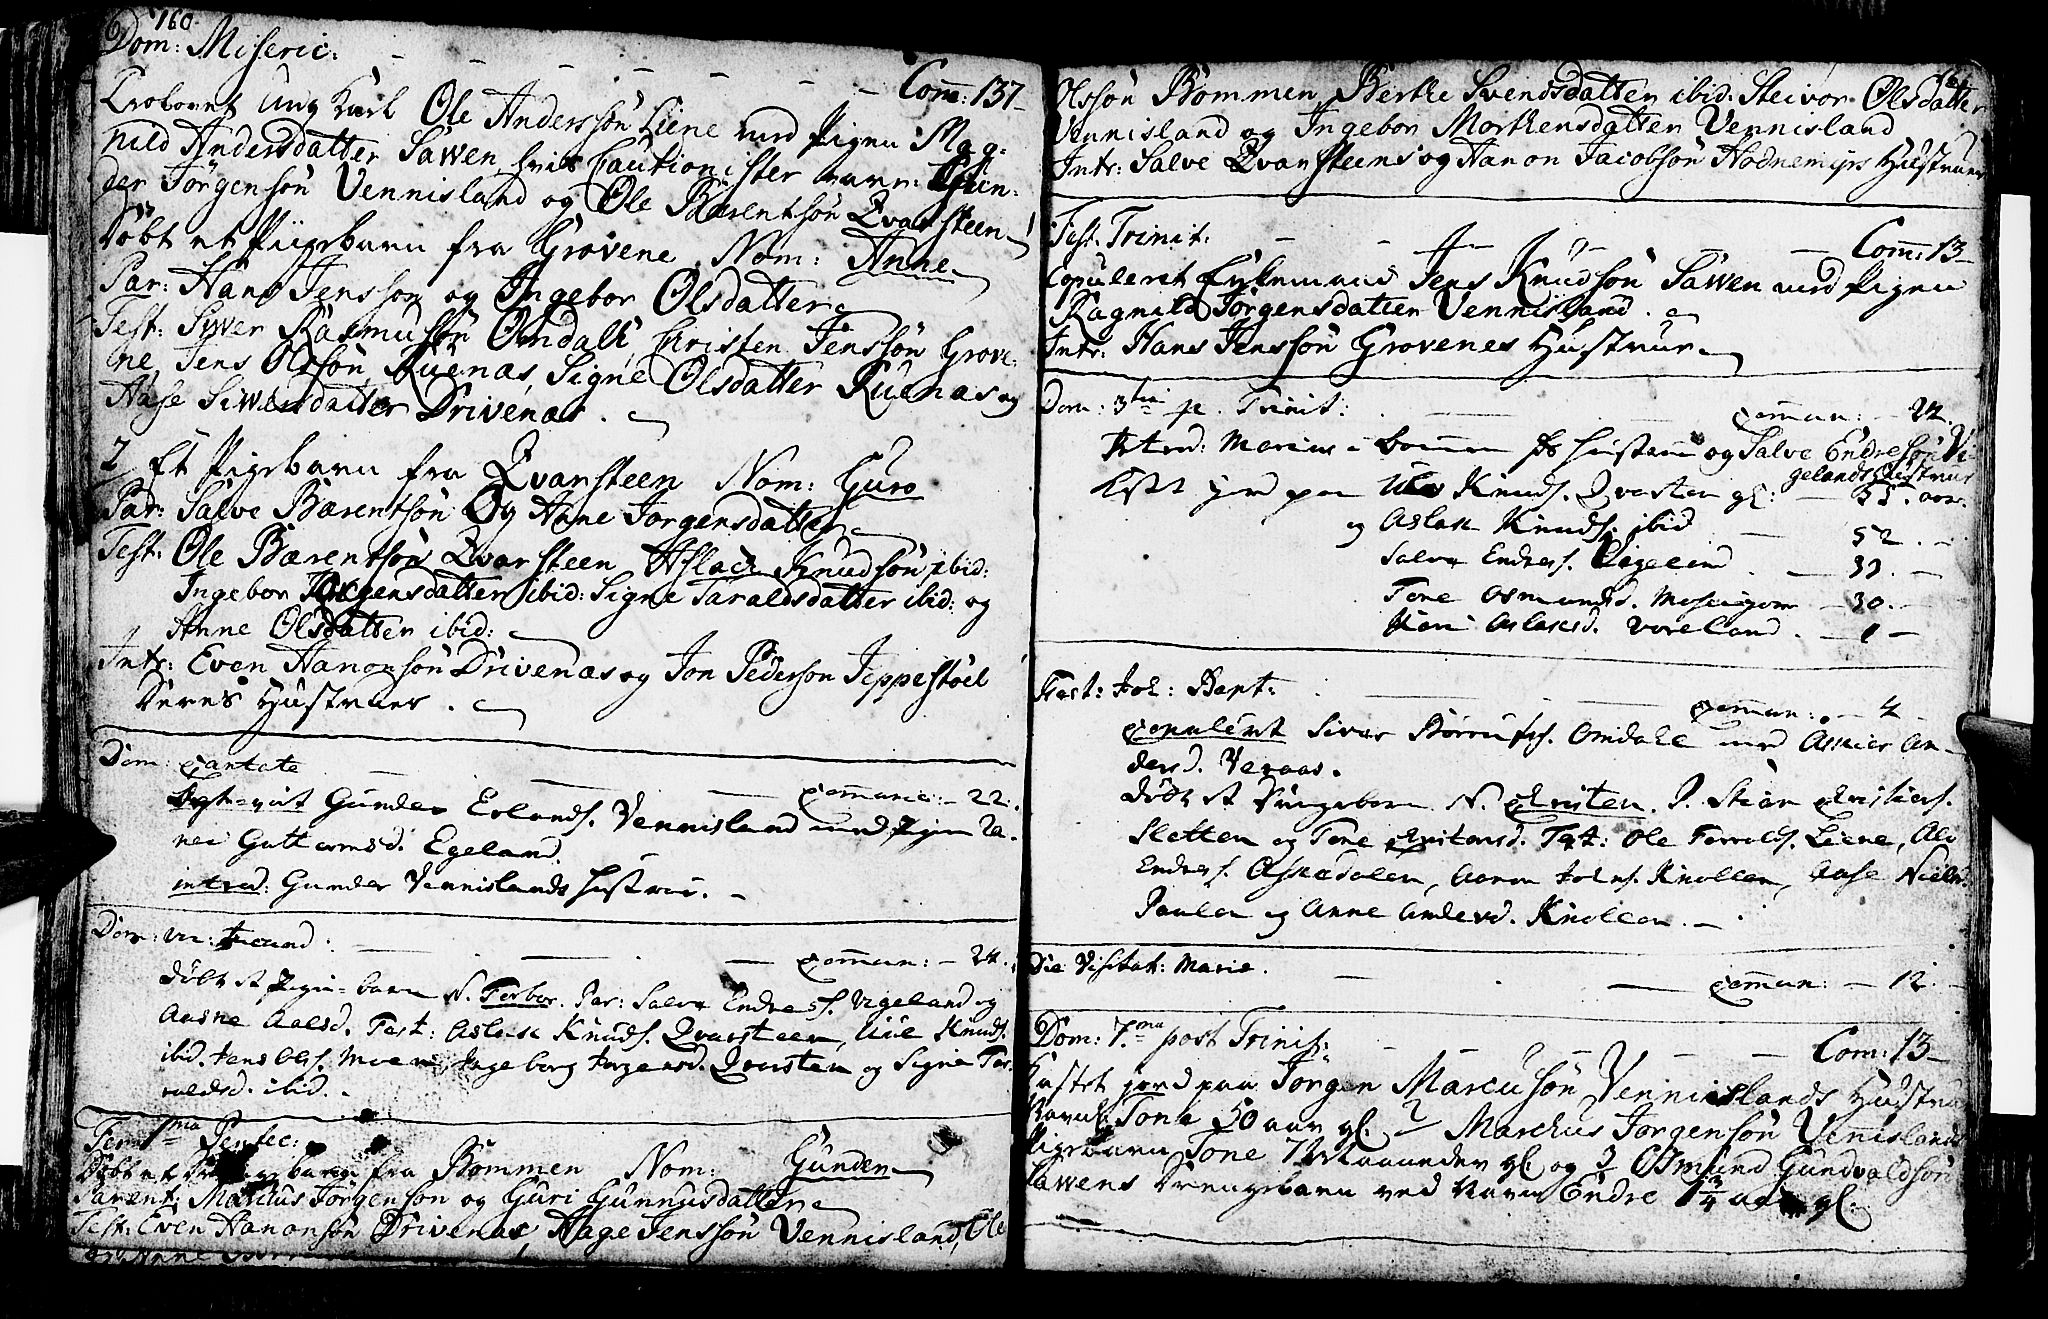 160.
Dom: Miseric: Com̄: 137
Trolovet Ung Karl Ole Anderssön Liene med Pigen Mag:
nild Andersdatter Sawen, hvis Cautionister vare: Gun:
der Jörgensön Vennisland og Ole Bærentsön Qvarsteen
Döbt et Piigebarn fra Grovene Nom: Anne
Par: Hans Jenssön og Ingebor Olsdatter
Test: Syver Rasmussön Omdall, Christen Jenssön Grove:
ne, Jens Olssön Ruenæs, Signe Olsdatter Ruenæs og
Aase Siwersdatter Drivenæs.
2 Et Pigebarn fra Qvarsteen Nom: Guro
Par: Salve Bærentsön Og Anne Jorgensdatter
Test: Ole Bærentsön Qvarsteen, Aslach Knudsön ibid:
Ingebor Jorgensdatter ibid: Signe Taraldsdatter ibid: og
Anne Olsdatter ibid:
Intr: Even Hanonsön Drivenæs og Jon Pederson Jeppestöel
Deres Hustruer.
Dom: Cantate Com̄unic: - 22.
Gunder Erlands. Vennisland med Pigen
Guttormsd. Egeland.
introd: Gunder Vennislands Hustrue.
Dom: Com̄un: - 24.
Döbt et Pige-barn N. Torbor. Par: Salve Endres. Vigeland og
Aasne Aalsd. Test: Aslak Knuds. Qvarsteen, Knuds.
ibid. Jens Ols. Moen, Ingeborg Jorgensd. Qvarsten og Signe Ta-
raldsd. ibid.
Fer: 1ma Pentec:
Döbt et Drengebarn fra Bommen Nom: Gunder
Parent: Marcus Jörgensön og Guri Gunnusdatter
Test: Even Hanonsön Drivenæs, Aage Jenssön Vennisland, Ole
161
Olssön Bommen Berthe Svendsdatter ibid. Steivor Olsdatter
Vennisland og Ingebor Morthensdatter Vennisland
Intr: Salve Qvarsteens og Hanon Jacobsön Hodnemyrs Hustruer
Fest. Trinit: Com̄: 13
Copuleret Enkemand Jens Knudsön Sawen med Pigen
Ragnild Jörgensdatter Vennisland.
Intr: Hans Jenssön Grovenes Hustrue
Dom: 3tia p. Trinit: Com̄un: - 24.
Introd: Marcus Bommen hustru og Salve Endresön Vi-
gelands Hustrue
Kast jord paa Knuds. Qvarsten gl: 55. aar.
og Aslak Knuds. ibid 52.
Salve Endres. Vigeland 33.
Tone Osmundsd. 30.
Aslaksd. Voreland. 1
Fest: Joh: Bapt: Com̄un: - 4
Copuleret Siver Omdahl med An-
dersd. Veraas.
Döbt et Drengebarn N. Christen. P. Stian Christens.
Sletten og Tone Christensd. Test: Ole Torrolds. Liene,
Endres. Askedalen, Aanon Johns. Knollen, Aase Nielsd.
Paulen og Anne Andersd. Knollen.
Die Visitat: Mariæ. Com̄un: - 12.
Dom: 7.ma post Trinit: Com: 13
Kastet jord paa Jörgen Marcusön Vennislands Hustrue
Navnl. Tone 50 aar gl. 2 Marckus Jorgensön Vennislands
Pigebarn Tone 7 Maaneder gl. og 3 Osmund Gundvaldsön
Sawens Drengebarn ved Navn Endre 1 3/4 aar gl.